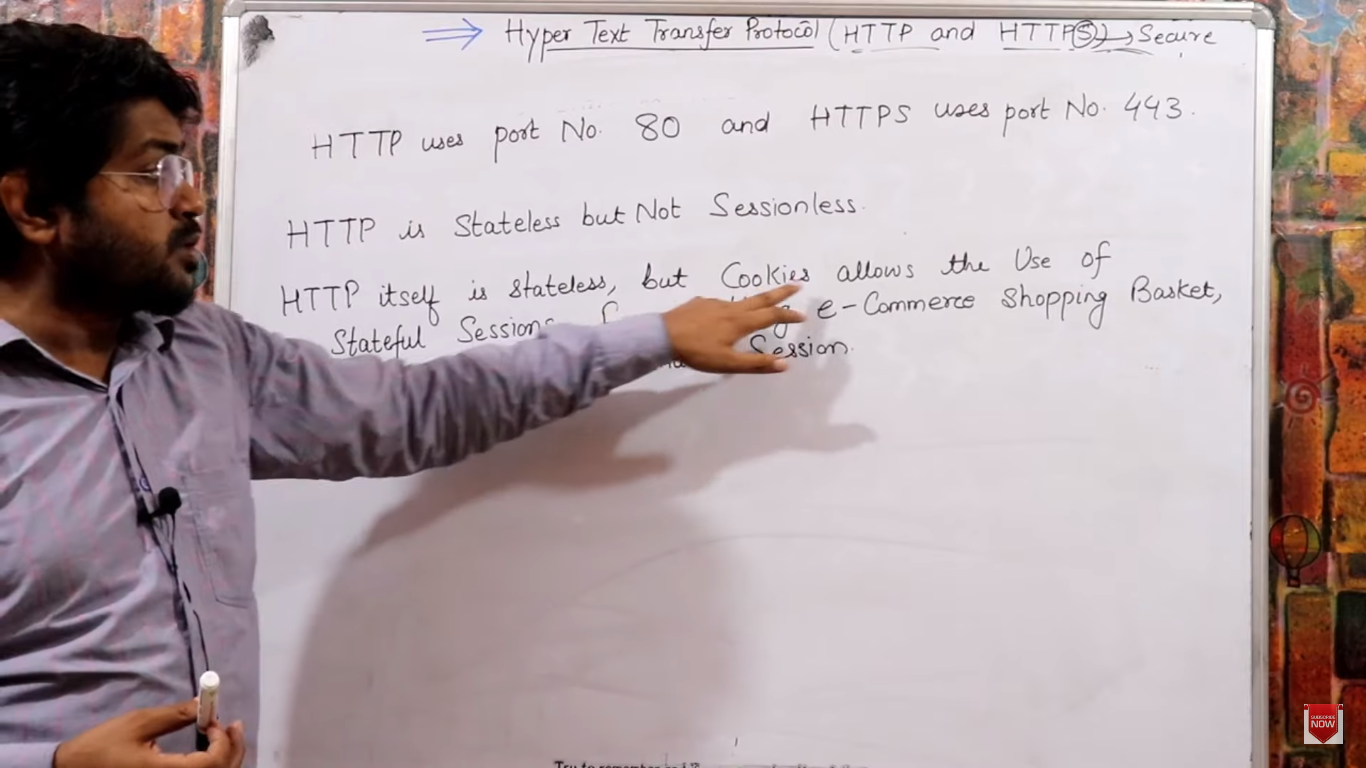 Hyper Text Transfer Protocol (HTTP and HTTPS) → Secure
HTTP uses port No. 80 and HTTPS uses port No. 443.
HTTP is Stateless but Not Sessionless.
HTTP itself is stateless, but Cookies allows the Use of
Stateful Sessions e-Commerce Shopping Basket,
Session.
Try to remember
SUBSCRIBE
NOW